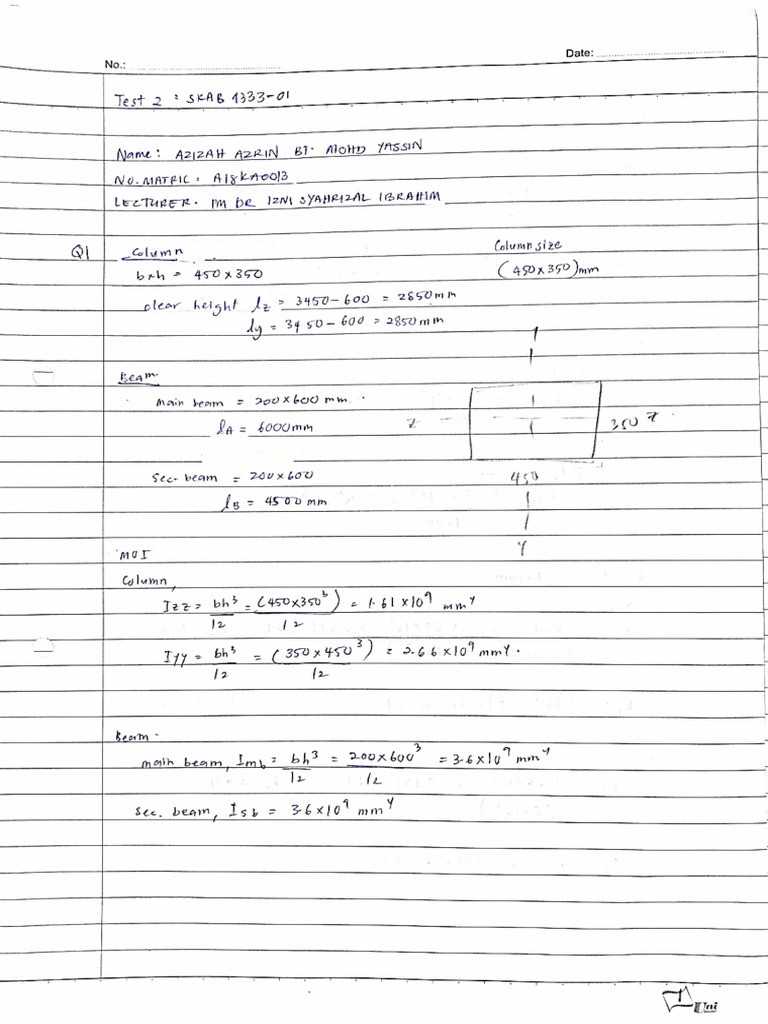 No.:
Date:
Test 2 : SKAB 1333-01
Name: AZIZAH AZRIN BT. MOHD YASSIN
NO. MATRIC. A18KA0013
LECTURER. PM DR IZNI SYAHRIZAL IBRAHIM
Q1
Column
Column size
b×h = 450 × 350
(450 × 350) mm
clear height lz = 3450 - 600 = 2850 mm
ly = 3450 - 600 = 2850 mm
Beam
main beam = 200 × 600 mm.
lA = 6000 mm
z
350 z
Sec. beam = 200 × 600
450
lB = 4500 mm
y
MOI
Column,
Izz = bh³/12 = (450 × 350³)/12 = 1.61 × 10⁹ mm⁴
Iyy = bh³/12 = (350 × 450³)/12 = 2.66 × 10⁹ mm⁴.
Beam.
main beam, Imb = bh³/12 = 200 × 600³/12 = 3.6 × 10⁹ mm⁴
Sec. beam, Isb = 3.6 × 10⁹ mm⁴
Uni